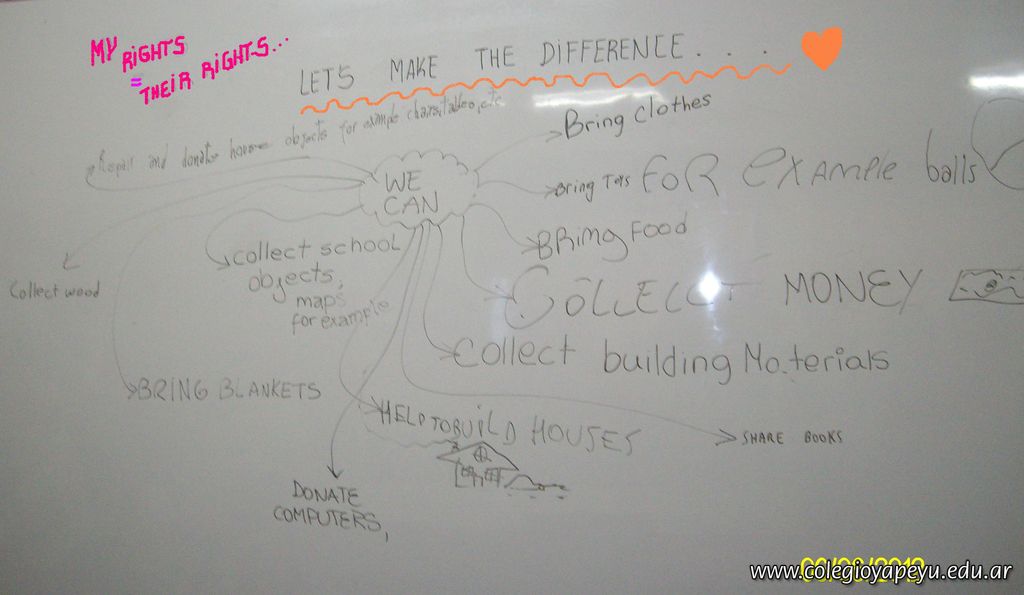 MY RIGHTS
=
THEIR RIGHTS...
LETS MAKE THE DIFFERENCE....
Repair and donate house objects for example chairs, tables, etc
Bring clothes
WE
CAN
Bring Toys FOR EXAMPLE balls
BRING FOOD
collect school
objects,
maps
for example
Collect wood
COLLECT MONEY
Collect building Materials
BRING BLANKETS
HELP TO BUILD HOUSES
SHARE BOOKS
DONATE
COMPUTERS,
www.colegioyapeyu.edu.ar